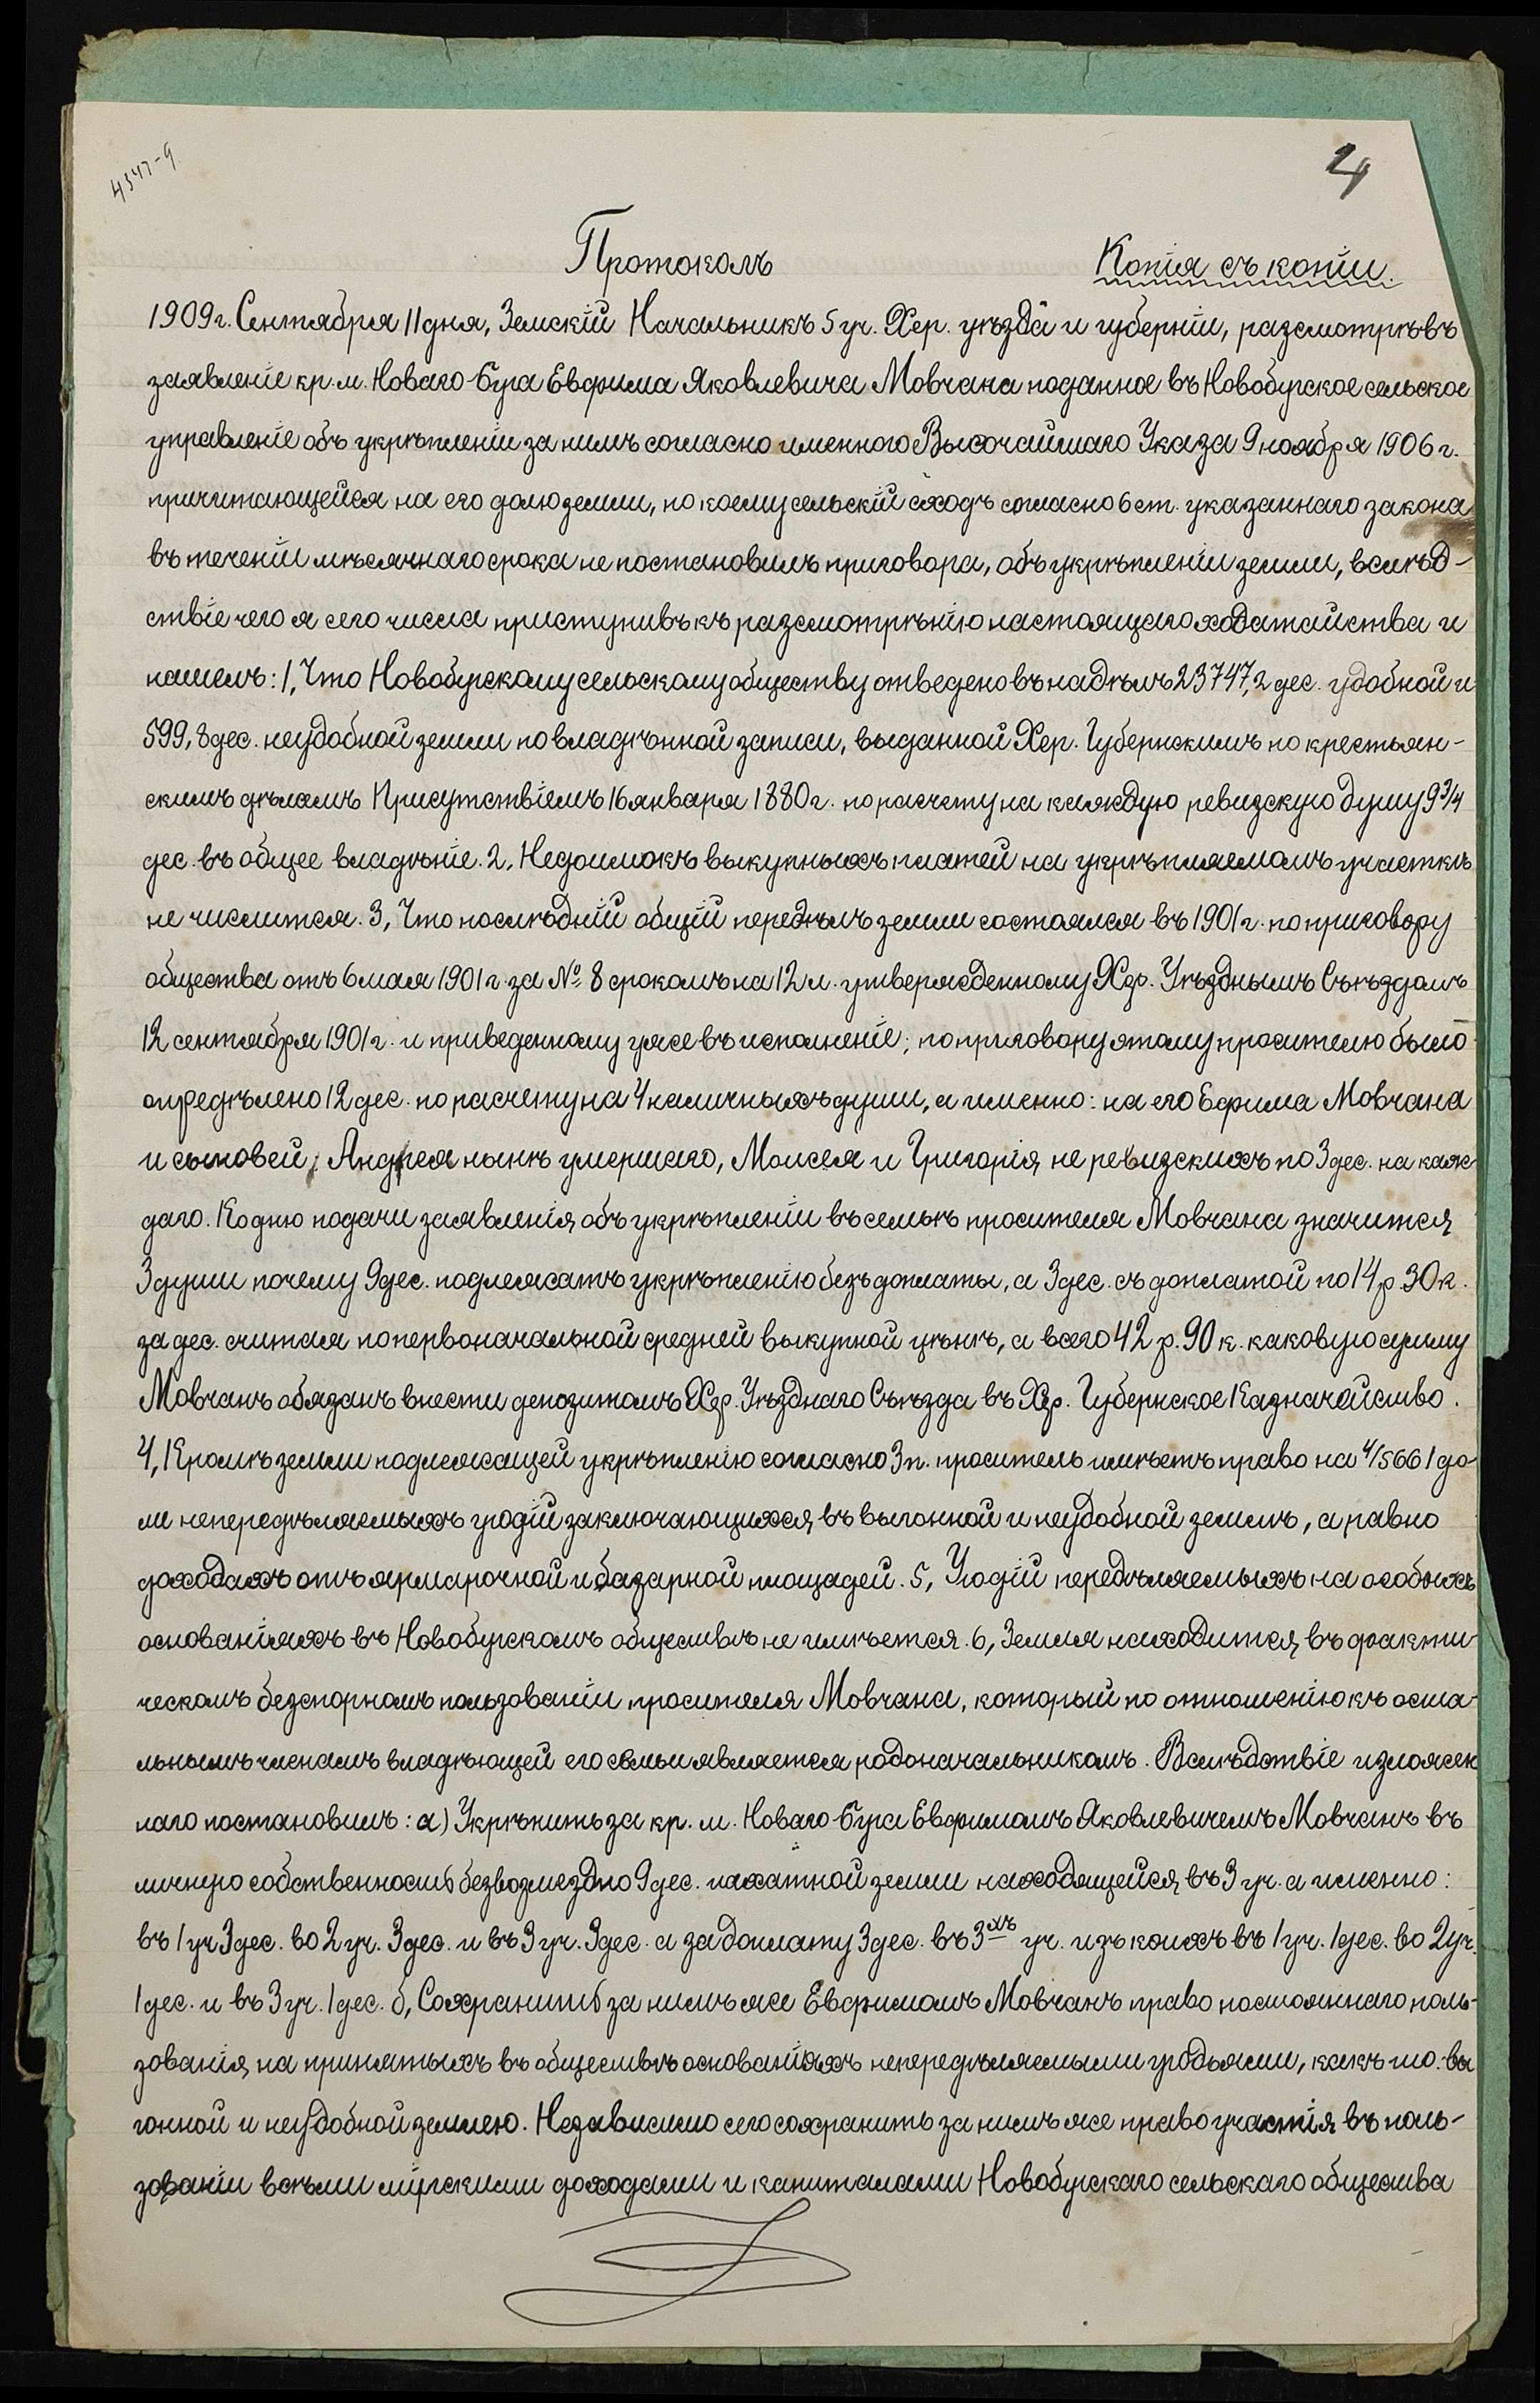 4347-9
4
Протоколъ
Копія съ копіи.
1909 г. Сентября 11 дня, Земскій Начальникъ 5 уч. Хер. уѣзда и губерніи, разсмотрѣвъ
заявленіе кр. м. Новаго-Буга Евфима Яковлевича Мовчана поданное въ Новобугское сельское
управленіе объ укрѣпленіи за нимъ согласно именного Высочайшаго Указа 9 ноября 1906 г.
причитающейся на его долю земли, по коему сельскій сходъ согласно 6 ст. указаннаго закона
въ теченіи мѣсячнаго срока не постановилъ приговора, объ укрѣпленіи земли, вслѣд-
ствіе чего я сего числа приступивъ къ разсмотрѣнію настоящаго ходатайства и
нашелъ: 1, Что Новобугскому сельскому обществу отведено въ надѣлъ 23747,2 дес. удобной и
599,8 дес. неудобной земли по владѣнной записи, выданной Хер. Губернскимъ по крестьян-
скимъ дѣламъ Присутствіемъ 16 января 1880 г. по расчету на каждую ревизскую душу 9 3/4
дес. въ общее владѣніе. 2, Недоимокъ выкупныхъ платей на укрѣпляемомъ участкѣ
не числится. 3, Что послѣдній общій передѣлъ земли состоялся въ 1901 г. по приговору
общества отъ 6 мая 1901 г. за № 8 срокомъ на 12 л. утвержденному Хер. Уѣзднымъ Съѣздомъ
12 сентября 1901 г. и приведенному уже въ исполненіе; по приговору этому просителю было
опредѣлено 12 дес. по расчету на 4 наличныхъ души, а именно: на его Ефима Мовчана
и сыновей, Андрея нынѣ умершаго, Моисея и Григорія, не ревизскихъ по 3 дес. на каж-
даго. Ко дню подачи заявленія объ укрѣпленіи въ семьѣ просителя Мовчана значится
3 души почему 9 дес. подлежатъ укрѣпленію безъ доплаты, а 3 дес. съ доплатой по 14 р. 30 к.
за дес. считая по первоначальной средней выкупной цѣнѣ, а всего 42 р. 90 к. каковую сумму
Мовчанъ обязанъ внести депозитомъ Хер. Уѣзднаго Съѣзда въ Хер. Губернское Казначейство.
4, Кромѣ земли подлежащей укрѣпленію согласно 3 п. проситель имѣетъ право на 4/5661 до-
ли непередѣляемыхъ угодій заключающихся въ выгонной и неудобной земель, а равно
доходахъ отъ ярмарочной и базарной площадей. 5, Угодій передѣляемыхъ на особыхъ
основаніяхъ въ Новобугскомъ обществѣ не имѣется. 6, Земля находится въ факти-
ческомъ безспорномъ пользованіи просителя Мовчана, который по отношенію къ оста-
льнымъ членамъ владѣющей его семьи является родоначальникомъ. Вслѣдствіе изложен
наго постановилъ: а) Укрѣпить за кр. м. Новаго-Буга Евфимомъ Яковлевичемъ Мовчанъ въ
личную собственность безвозмездно 9 дес. пахатной земли находящейся въ 3 уч. а именно:
въ 1 уч 3 дес. во 2 уч. 3 дес. и въ 3 уч. 3 дес. а за доплату 3 дес. въ 3хъ уч. изъ коихъ въ 1 уч. 1 дес. во 2 уч.
1 дес. и въ 3 уч. 1 дес. б, Сохранить за нимъ же Евфимомъ Мовчанъ право постояннаго поль-
зованія, на принятыхъ въ обществѣ основаніяхъ непередѣляемыми угодьями, какъ то: вы
гонной и неудобной землею. Независимо сего сохранить за нимъ же право участія въ поль-
зованіи всѣми мірскими доходами и капиталами Новобугскаго сельскаго общества